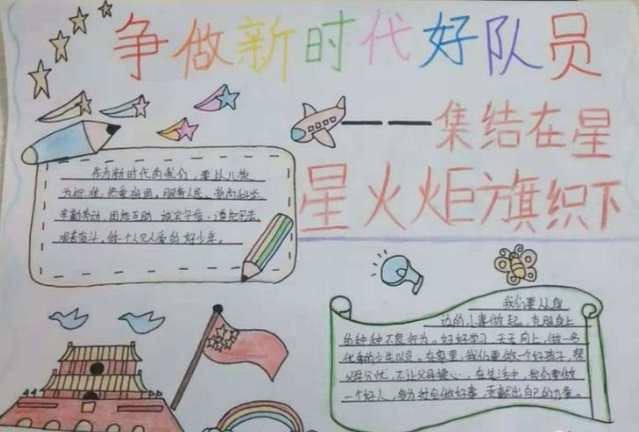 争做新时代好队员
——集结在星
星火炬旗织下
作为新时代的我们，要从
为标准，热爱祖国，服务人民，崇尚科学
辛勤劳动，团结互助，诚实守信，遵纪守法
艰苦奋斗。做一个人见人爱的好少年。
我们要从身
边的小事做起，克服身上
的种种不良行为，好好学习，天天向上，做一名
优秀的少先队员，在家里，我们要做一个好孩子，帮
父母分忧，不让父母操心，在生活中，我们要做
一个好人，多为社会做好事，贡献出自己的力量。